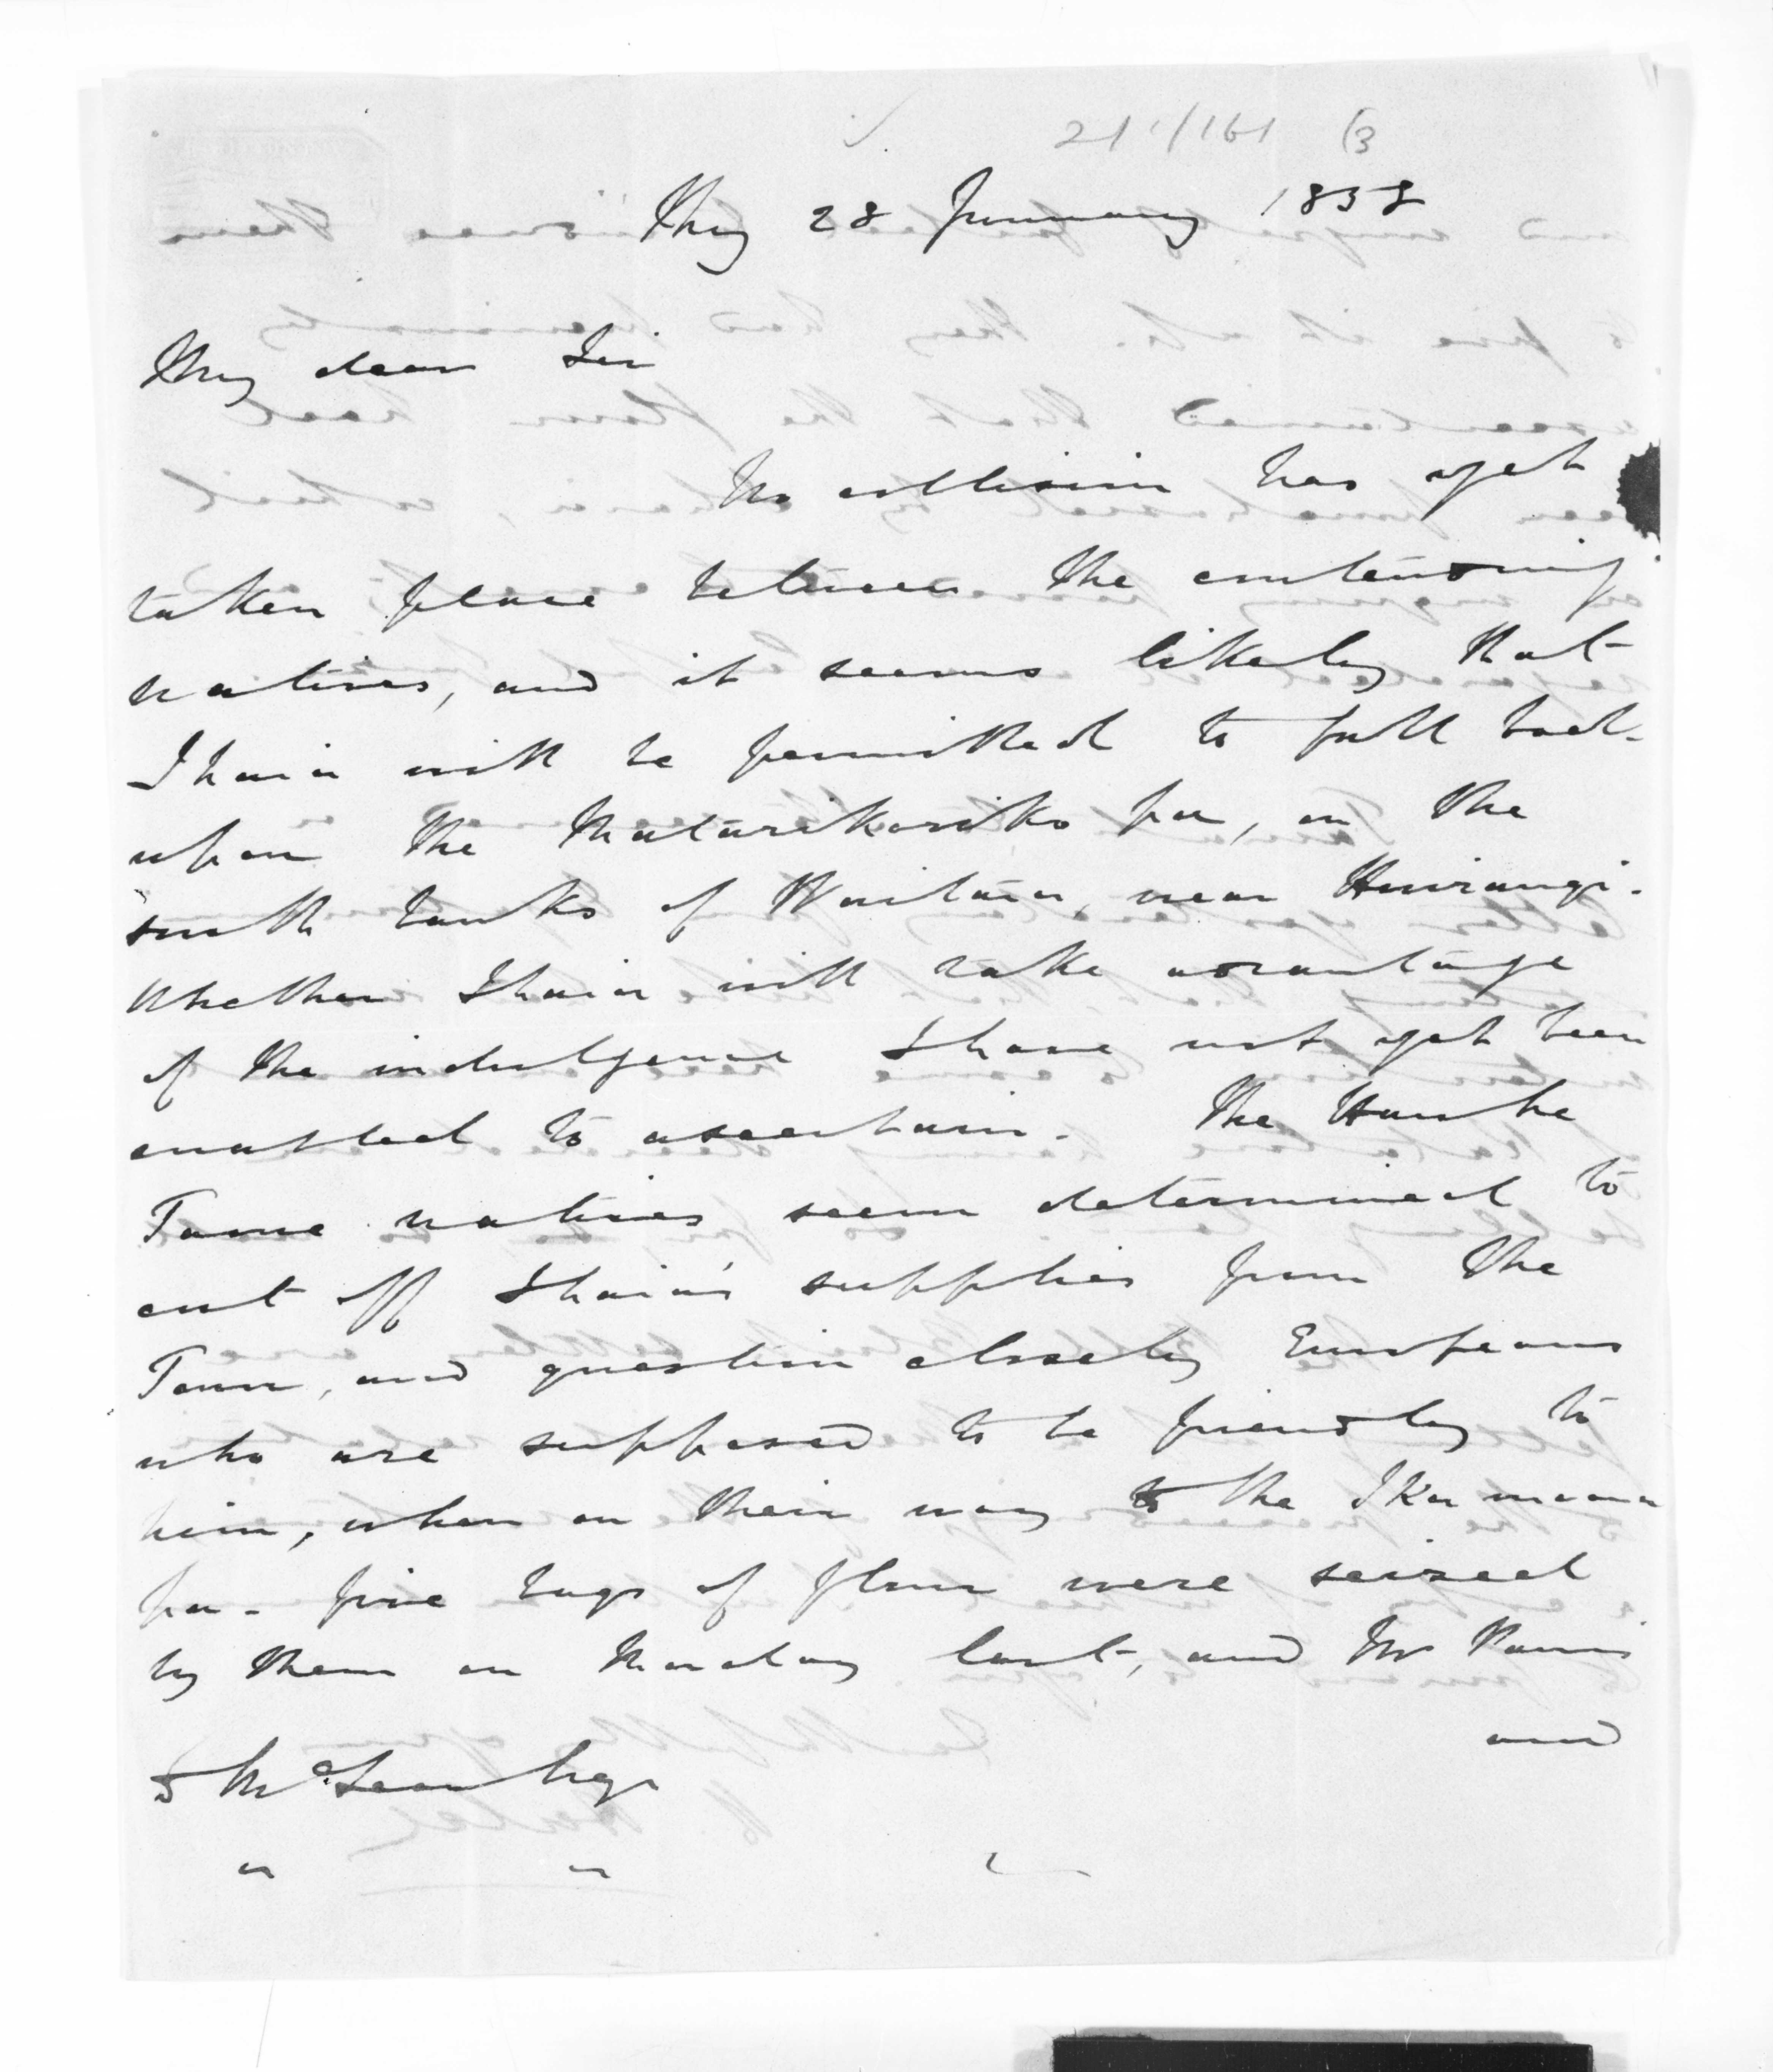 211/161 (3
Thy 28 January 1858
My dear Sir
No collision has yet
taken place between the contending
natives, and it seems likely that
Ihaia will be permitted to fall back
upon the Matarikoriko pa, on the
south banks of Waitara, near Huirangi.
Whether Ihaia will take advantage
of the indulgence I have not yet been
enabled to ascertain. The Hau ke
Tame natives seem determined to
cut off Ihaia's supplies from the
Town, and question closely Europeans
who are supposed to be friendly to
him, when on their way to the Ika moana
pa. Five bags of flour were seized
by them on Monday last, and Mr Parris
and
D McLean Esqr
" "